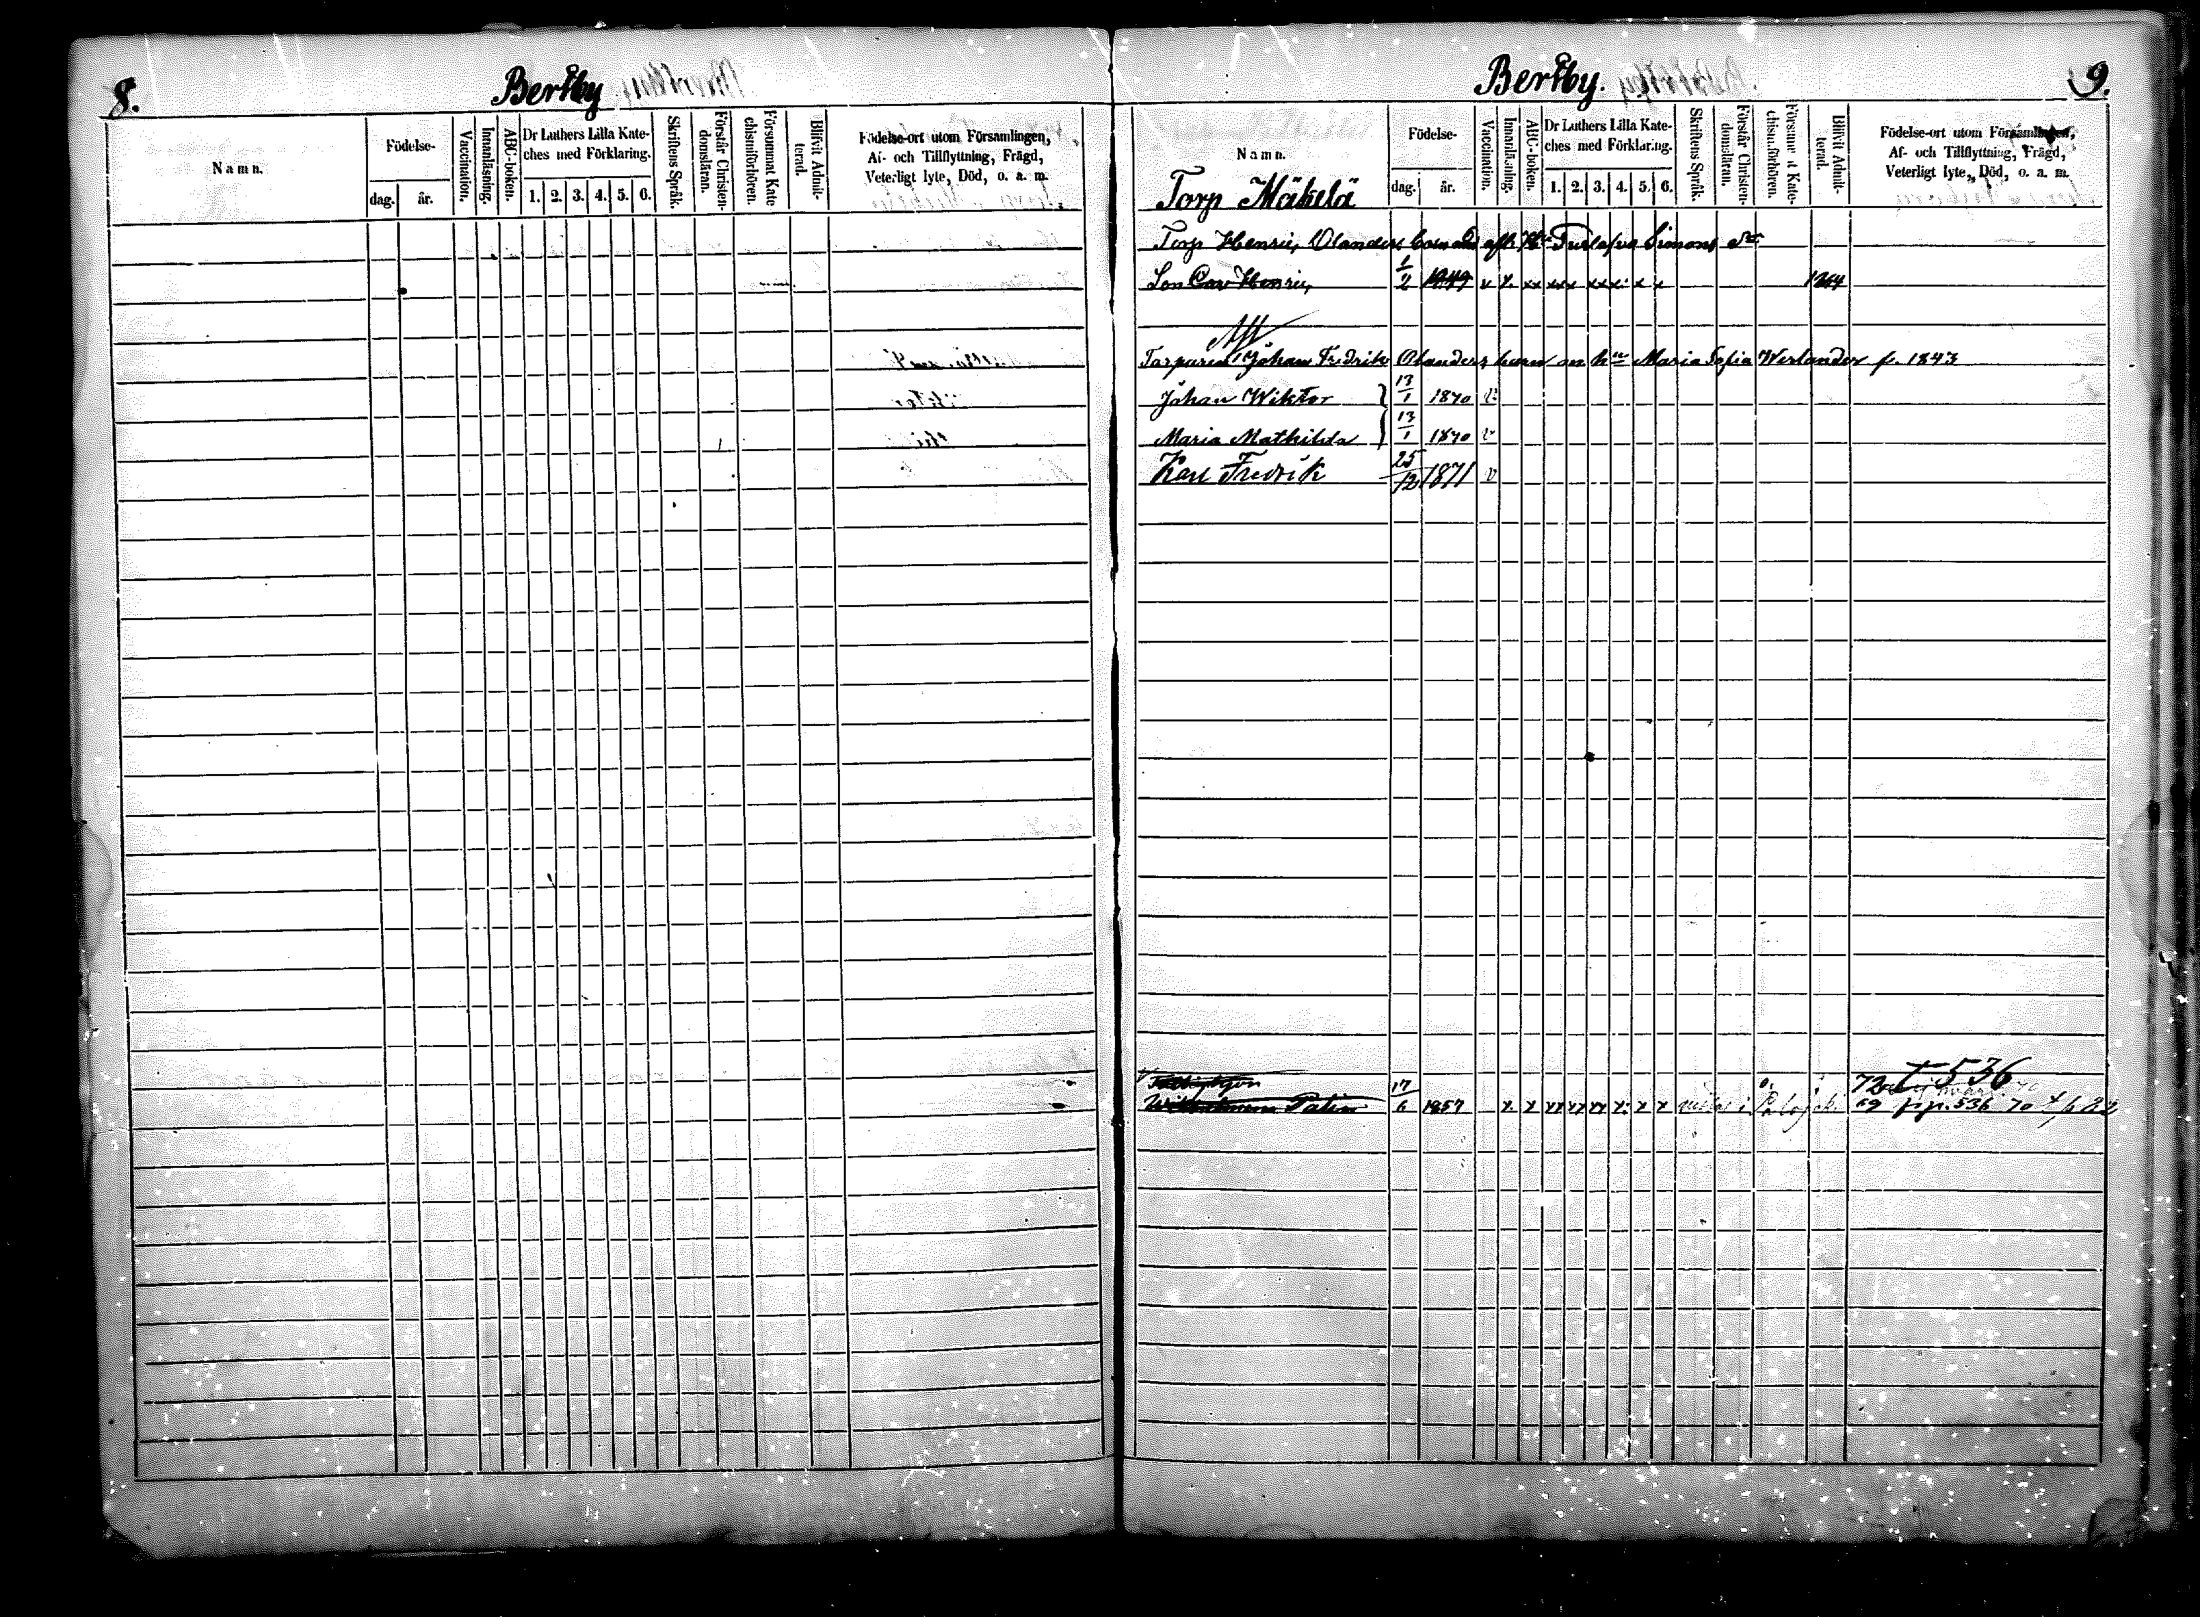 8.
Bertby
Namn.
Födelse-
dag.
år.
Vaccination.
Innanläsning.
ABC-boken.
Dr Luthers Lilla Kate-
ches med Förklaring.
1. 2. 3. 4. 5. 6.
Skriftens Språk.
Förstår Christen-
domsläran.
Försummat Kate
chismiförhören.
Blifvit Admit-
terad.
Födelse-ort utom Församlingen,
Af- och Tillflyttning, Frägd,
Veterligt lyte, Död, o. a. m.
Bertby.
9.
Namn.
Födelse-
dag.
år.
Vaccination.
Innanläsning.
ABC-boken.
Dr Luthers Lilla Kate-
ches med Förklaring.
1. 2. 3. 4. 5. 6.
Skriftens Språk.
Förstår Christen-
domsläran.
Försummat Kate-
chism.förhören.
Blifvit Admit-
terad.
Födelse-ort utom Församlingen,
Af- och Tillflyttning, Frägd,
Veterligt lyte, Död, o. a. m.
Torp Mäkelä
Torp Henric Olanders barn Simons
Son Carl Henric 1/2 1849 v x xx xxx xxx: x x
Torparen Johan Fredrik Olanders barn an hu Maria Sofia Werlander f. 1843
Johan Wiktor 13/1 1870 v
Maria Mathilda 13/1 1870 v
Karl Fredrik 25/12 1871 v
72 † 536
Palin 17/6 1857 x x xx xx xx x: x x 69 536 70